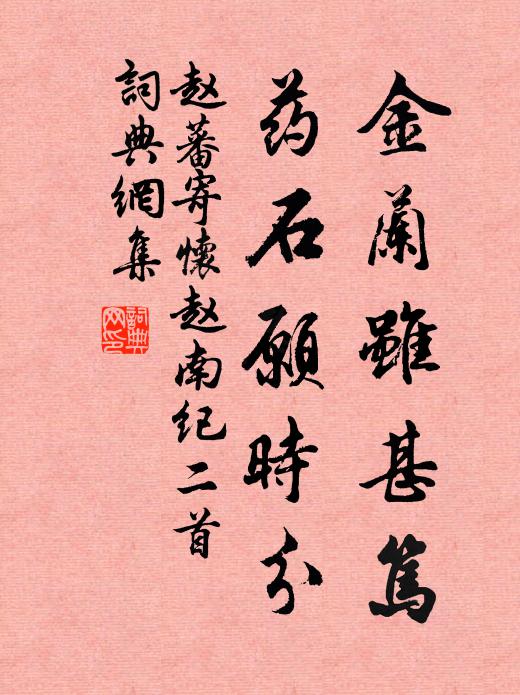 金蘭雖甚篤
药石願時分
赵蕃寄懷赵南纪二首
詞典網集
詞典网印